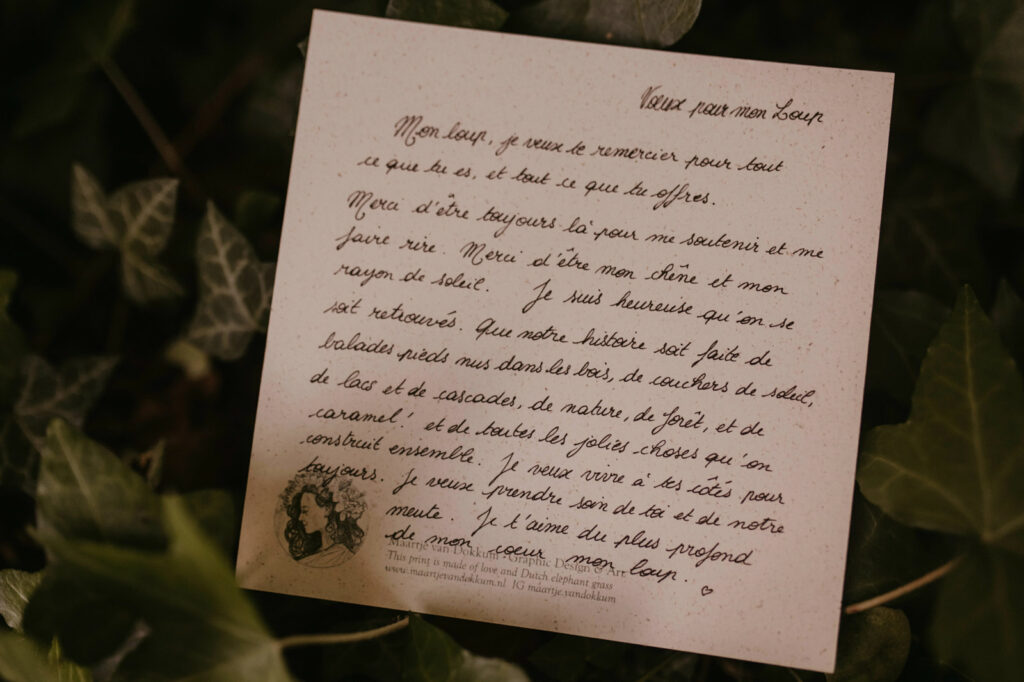 Vœux pour mon Loup
Mon loup, je veux te remercier pour tout
ce que tu es, et tout ce que tu offres.
Merci d'être toujours là pour me soutenir et me
faire rire. Merci d'être mon chêne et mon
rayon de soleil. Je suis heureuse qu'on se
soit retrouvés. Que notre histoire soit faite de
balades pieds nus dans les bois, de couchers de soleil,
de lacs et de cascades, de nature, de forêt, et de
caramel! et de toutes les jolies choses qu'on
construit ensemble. Je veux vivre à tes côtés pour
toujours. Je veux prendre soin de toi et de notre
meute. Je t'aime du plus profond
de mon coeur mon loup. ♡
Maartje van Dokkum - Graphic Design & Art
This print is made of love and Dutch elephant grass
www.maartjevandokkum.nl IG maartje.vandokkum